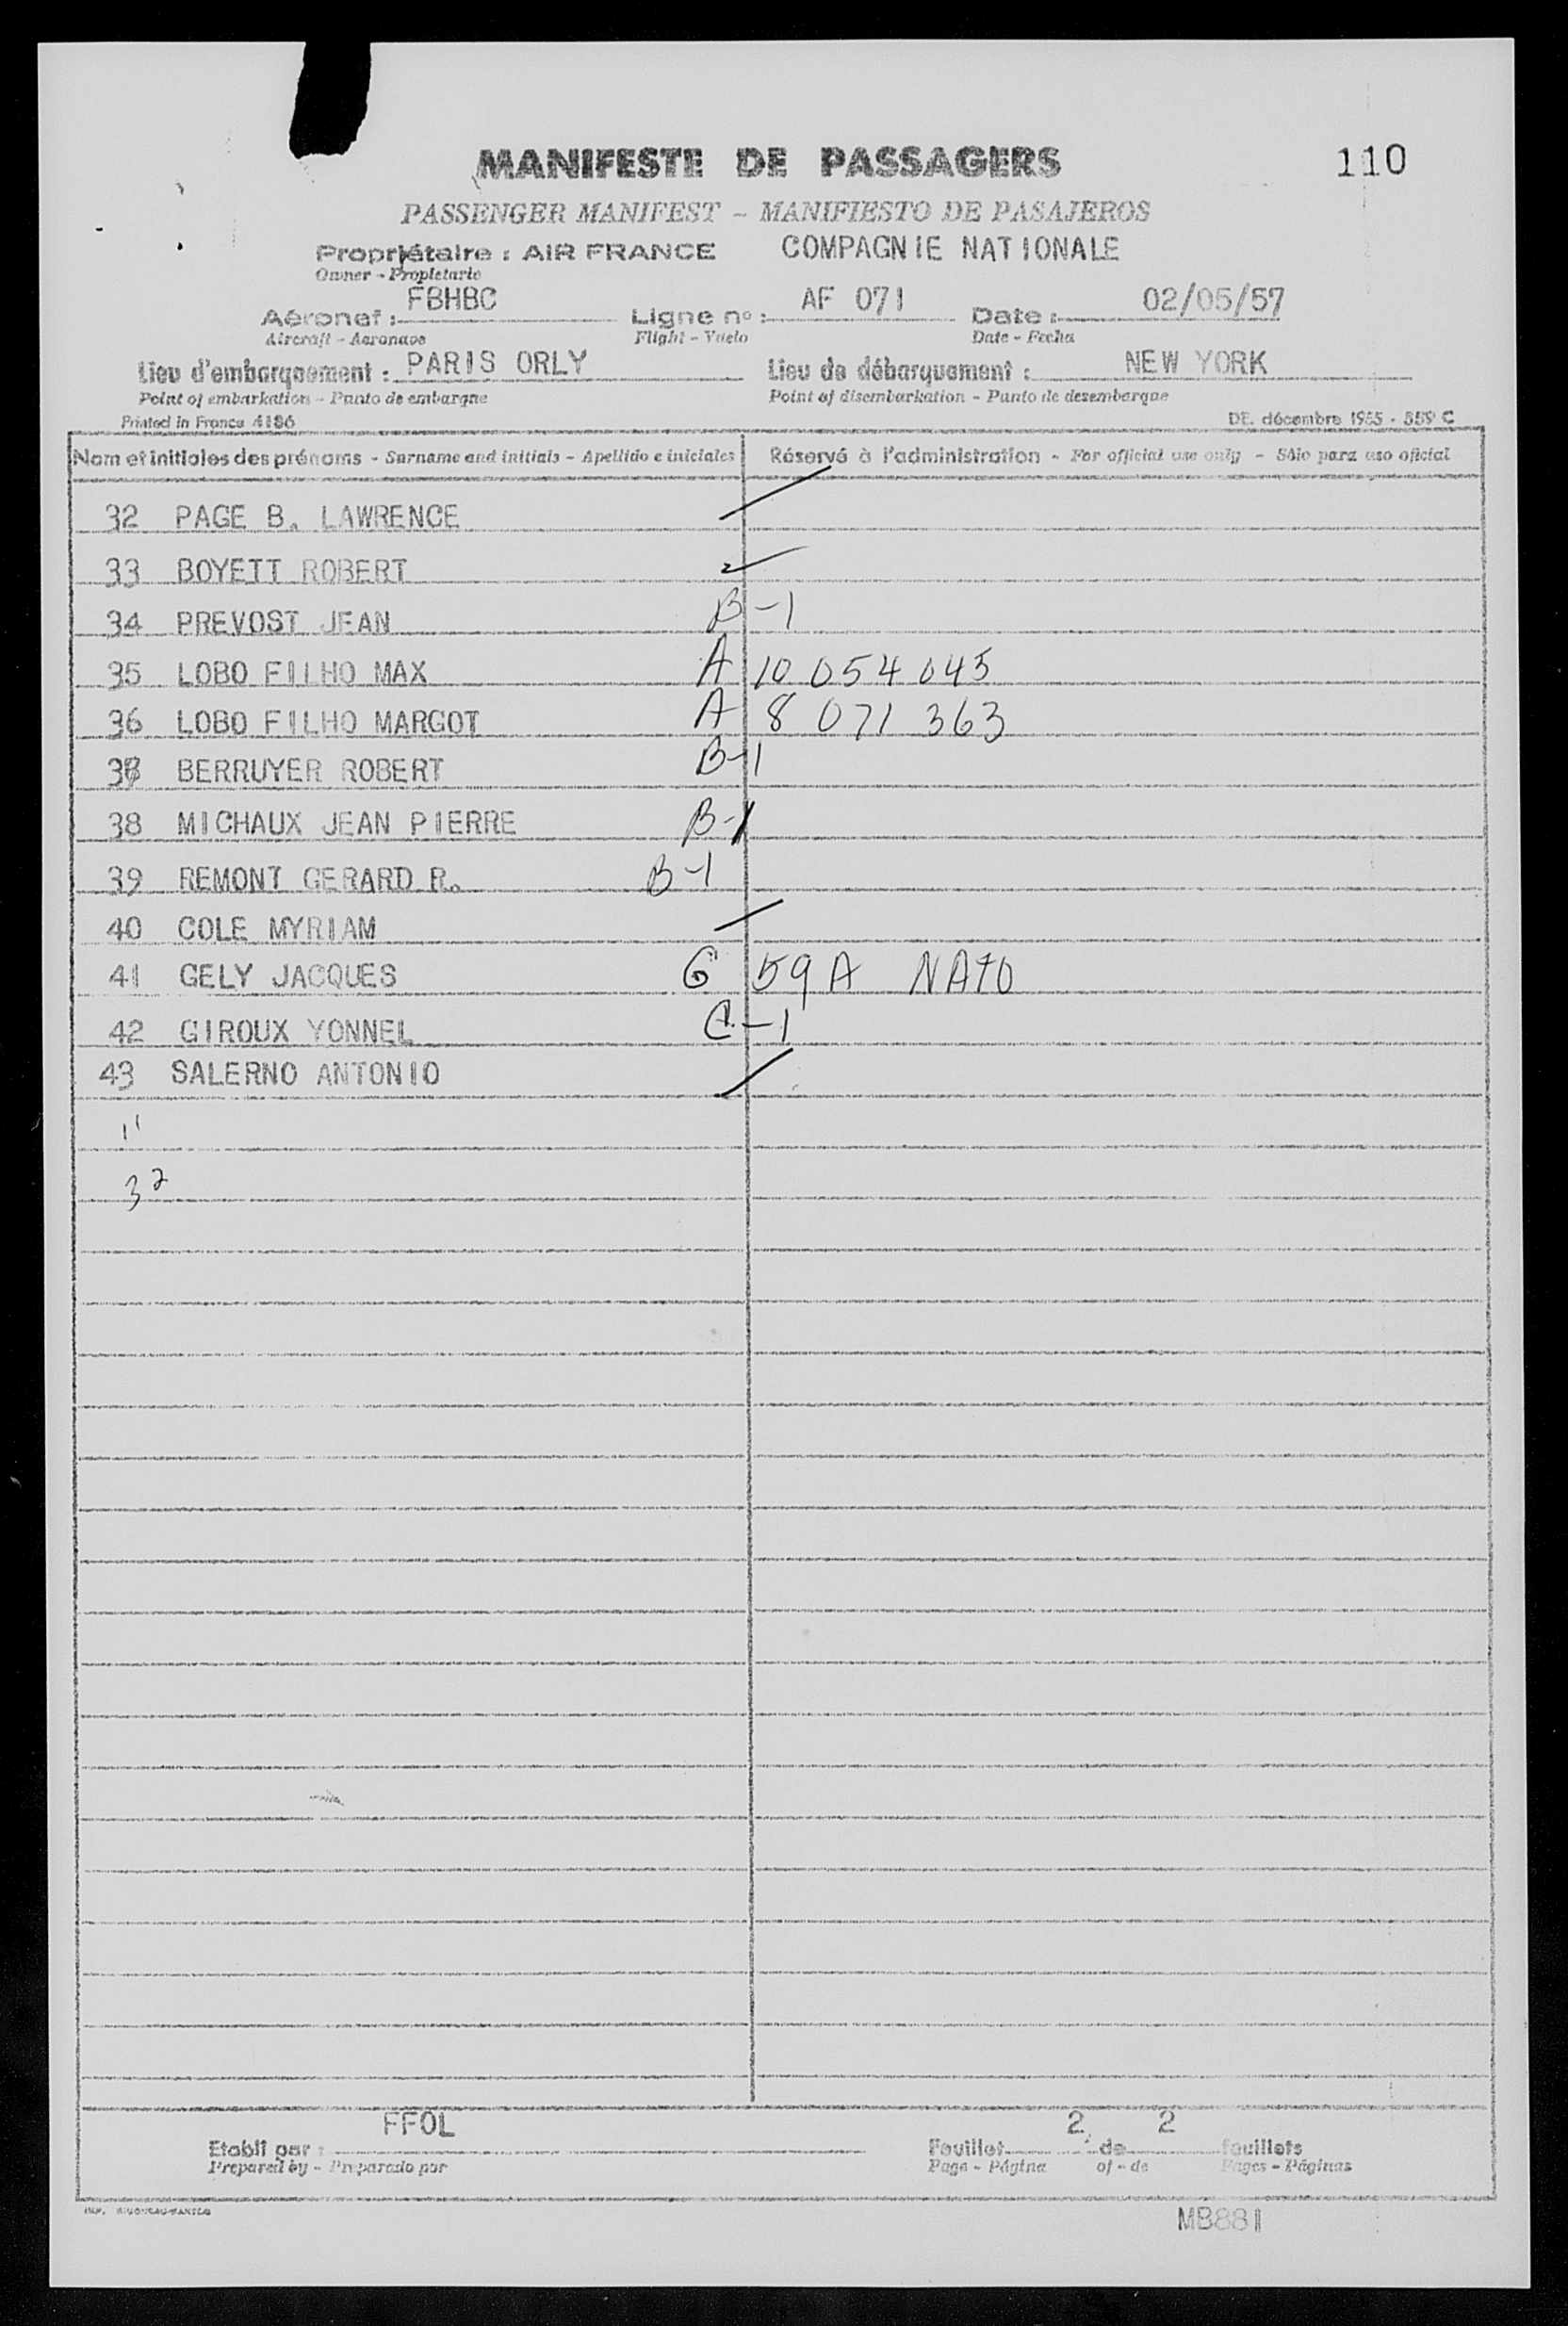 MANIFESTE DE PASSAGERS 110
PASSENGER MANIFEST - MANIFIESTO DE PASAJEROS
Propriétaire : AIR FRANCE COMPAGNIE NATIONALE
Owner - Propietario
Aéronef : FBHBC Ligne nº : AF 071 Date : 02/05/57
Aircraft - Aeronave Flight - Vuelo Date - Fecha
Lieu d'embarquement : PARIS ORLY Lieu de débarquement : NEW YORK
Point of embarkation - Punto de embarque Point of disembarkation - Punto de desembarque
Printed in France 4186 DE. décembre 1955 - 359 C
Nom et initiales des prénoms - Surname and initials - Apellido e iniciales Réservé à l'administration - For official use only - Sólo para uso oficial
32 PAGE B. LAWRENCE
33 BOYETT ROBERT
34 PREVOST JEAN B-1
35 LOBO FILHO MAX A 10 054 045
36 LOBO FILHO MARGOT A 8 071 363
37 BERRUYER ROBERT B-1
38 MICHAUX JEAN PIERRE B-1
39 REMONT GERARD R. B-1
40 COLE MYRIAM
41 GELY JACQUES G 59A NATO
42 GIROUX YONNEL C-1
43 SALERNO ANTONIO
11
32
FFOL 2 2
Etabli par : Feuillet de feuillets
Prepared by - Preparado por Page - Página of - de Pages - Páginas
MB881